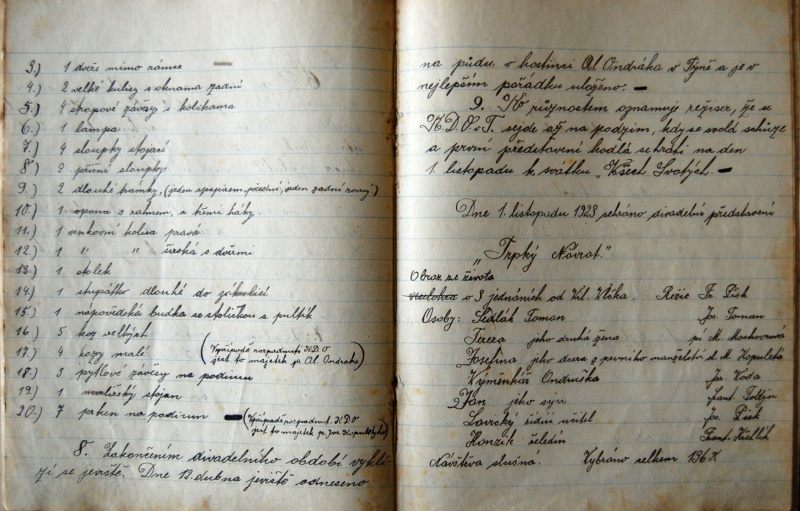 3.) 1 dveře mimo rámce
4.) 2 velké kulisy s oknama zadní
5.) 4 stropové závěsy s kolíkama
6.) 1 lampa
7.) 4 sloupky stojací
8.) 2 přívní sloupky
9.) 2 dlouhé trámky, (jeden přední, jeden zadní rovný)
10.) 1 opona s rahnem, s třemi háky.
11.) 1 venkovní kulisa pravá
12.) 1 " " široká s dveřmi
13.) 1 stolek
14.) 1 stupátko dlouhé do
15.) 1 nápovědská budka se stoličkou a pultík
16.) 5 koz velkých
17.) 4 kozy malé
(V případě rozpadnutí K.D.O
jest to majetek p. Al. Ondráka)
18.) 3 pytlové závěsy na podium
19.) 1 malířský stojan
20.) 7 prken na podium —
(V případě rozpadnutí K.D.O
jest to majetek p. Jos.
8. Zakončením divadelního období vyklí-
zí se jeviště. Dne 12. dubna jeviště odneseno
na půdu, v hostinci Al Ondráka v Týně a je v
nejlepším pořádku uloženo. —
9. Ku různostem oznamuje režisér, že se
K.D.O. v T. sejde až na podzim, kdy se svolá schůze
a první představení hodlá sehráti na den
1. listopadu k svátku „Všech Svatých. —
Dne 1. listopadu 1923 sehráno divadelní představení
„Trpký Návrat."
Obraz ze života
veselohra o 3 jednáních od Vil. Vlčka. Režie Fr. Pisk
Osoby: Sedlák Toman Jos. Toman
Tereza jeho druhá žena sl. M. Machovcová
Josefina jeho dcera z prvního manželství sl. M. Kopuletá
Výměnkář Ondruška Jar. Voda
Jan jeho syn Frant.
Lavický řídící učitel Jos. Pisk
Honzík čeledín Frant.
Návštěva slušná. Vybráno celkem 196 K.